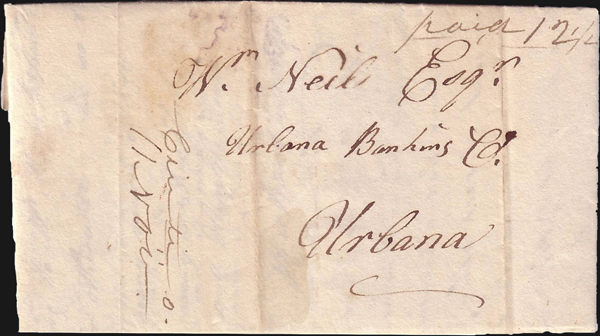 paid 12 1/2
Wm Neil Esqr.
Urbana Banking Co.
Urbana
Cinti o.
11 Nov.